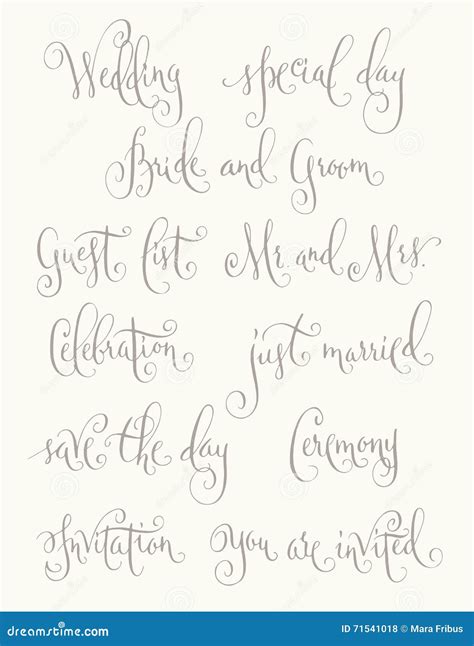 Wedding special day
Bride and Groom
Guest list Mr. and Mrs.
Celebration just married
save the day Ceremony
Invitation You are invited
dreamstime.com
ID 71541018 © Mara Fribus